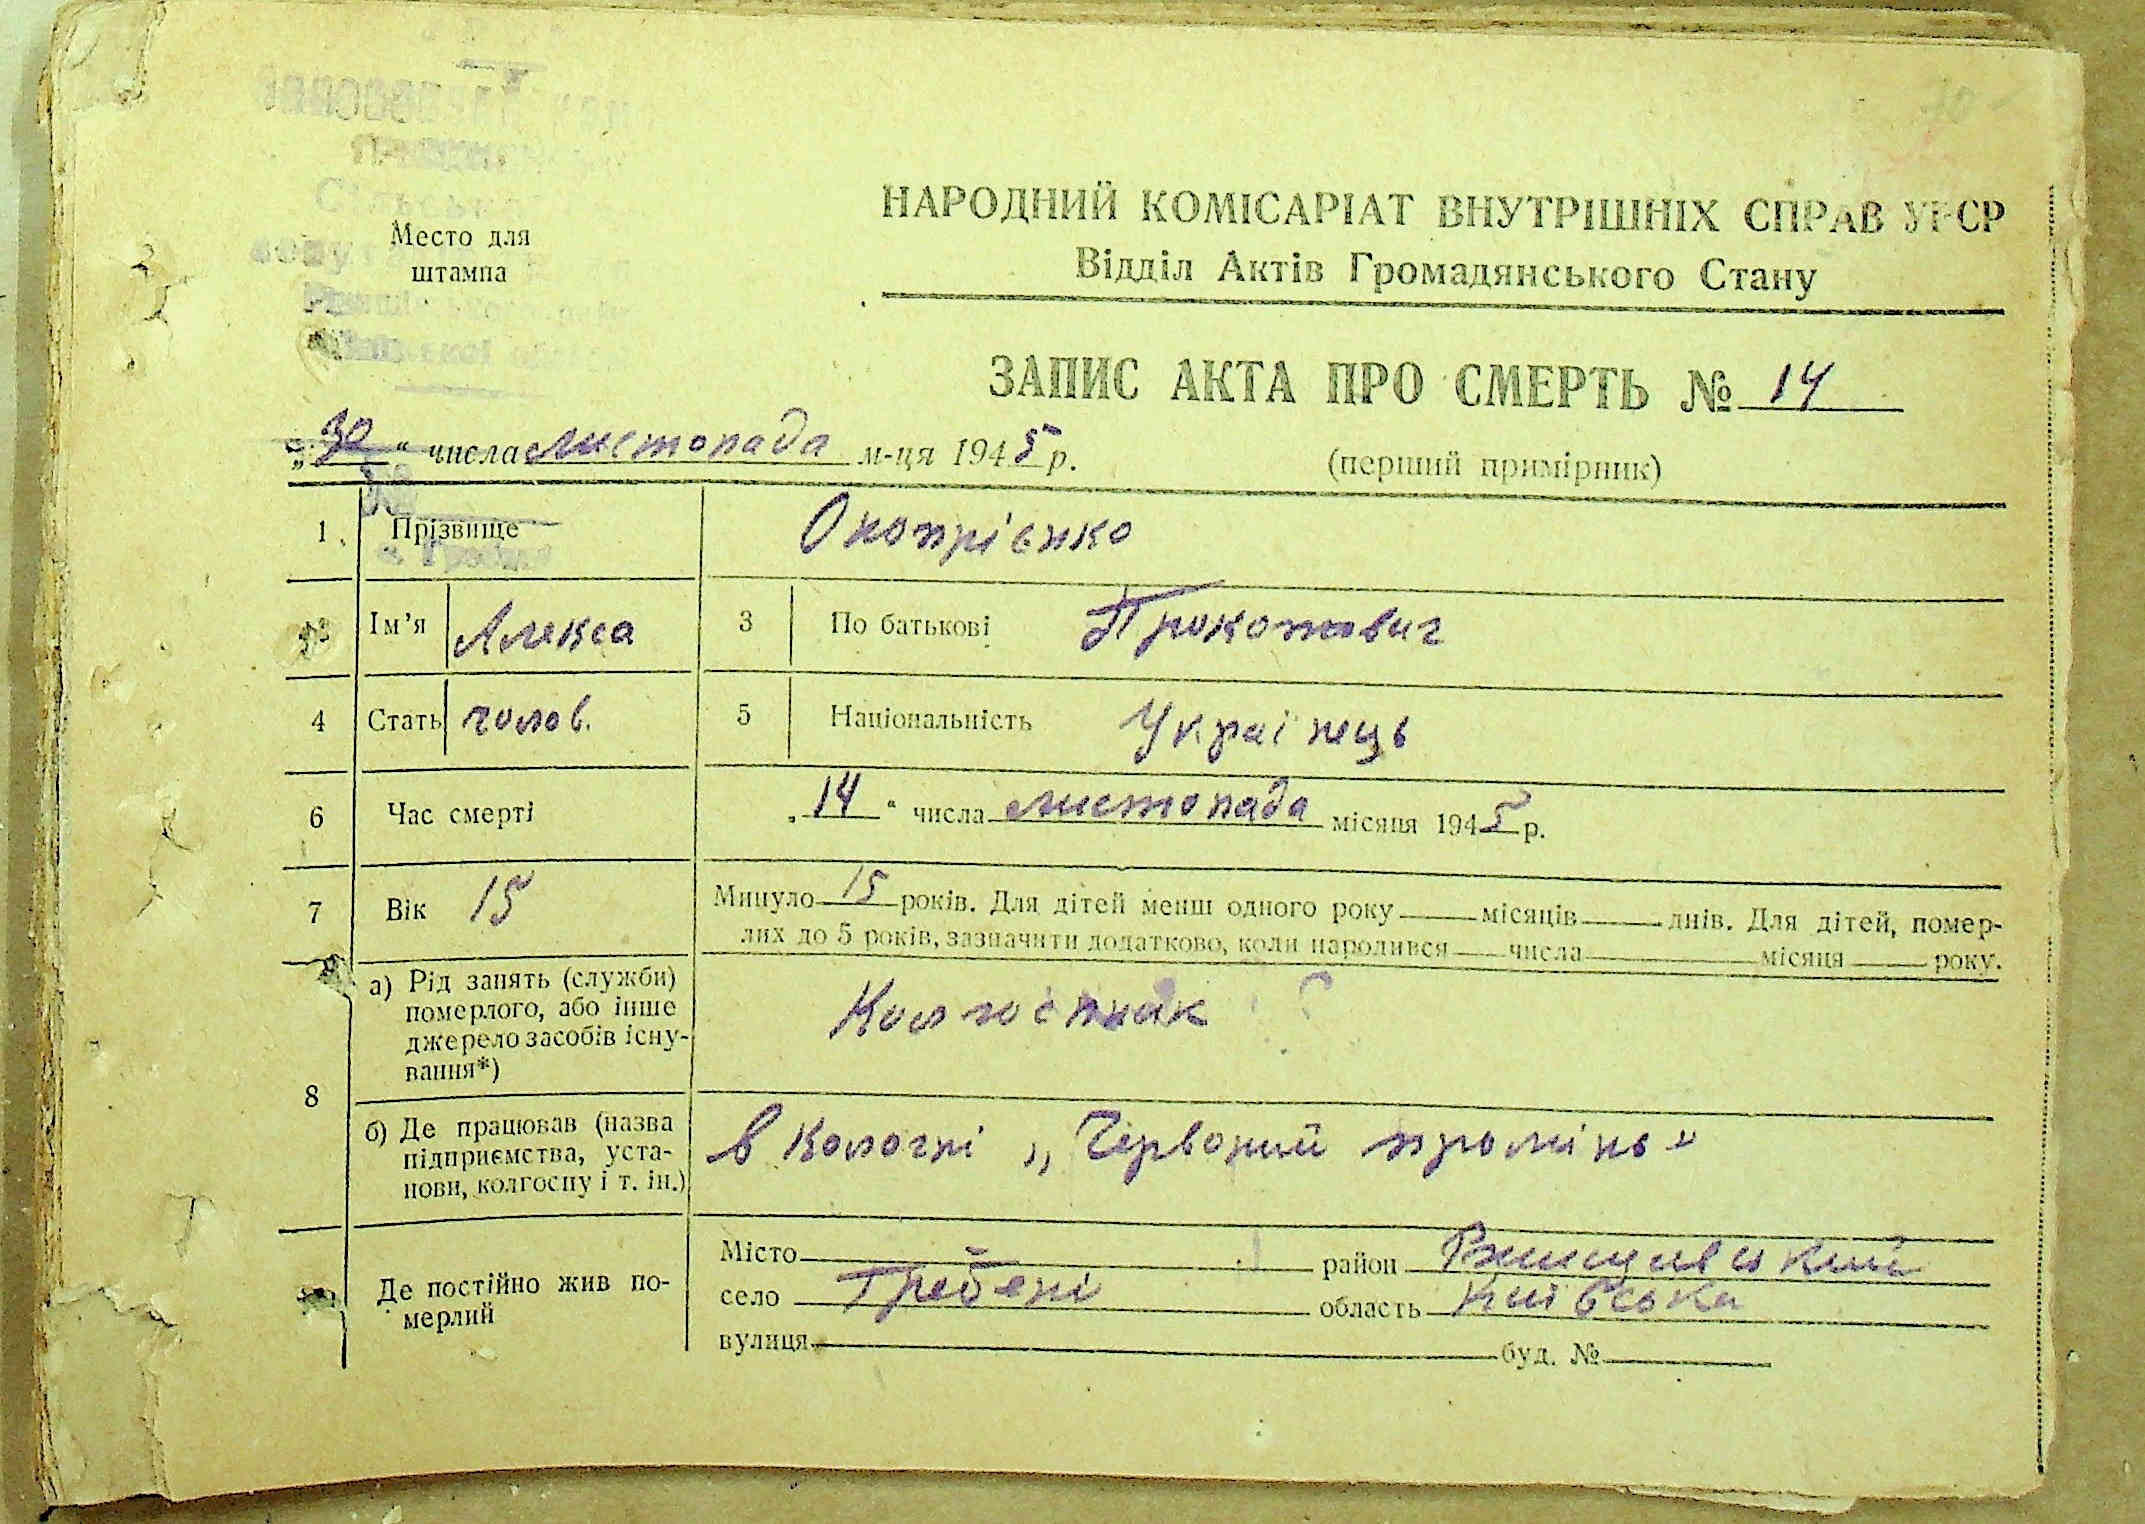 Место для
штампа
НАРОДНИЙ КОМІСАРІАТ ВНУТРІШНІХ СПРАВ УРСР
Відділ Актів Громадянського Стану
ЗАПИС АКТА ПРО СМЕРТЬ № 14
„30“ числа листопада м-ця 1945 р.
(перший примірник)
1 Прізвище Онопрієнко
Ім’я Алекса 3 По батькові Прокопович
4 Стать чолов. 5 Національність Украінець
6 Час смерті „14“ числа листопада місяця 1945 р.
7 Вік 15 Минуло 15 років. Для дітей менш одного року місяців днів. Для дітей, помер-
лих до 5 років, зазначити додатково, коли народився числа місяця року.
8 а) Рід занять (служби)
померлого, або інше
джерело засобів існу-
вання*)
Колгоспник
б) Де працював (назва
підприємства, уста-
нови, колгоспу і т. ін.)
в кологпі „Червоний промінь"
Де постійно жив по-
мерлий
Місто район Ржищивський
село Гребені область Киівська
вулиця буд. №